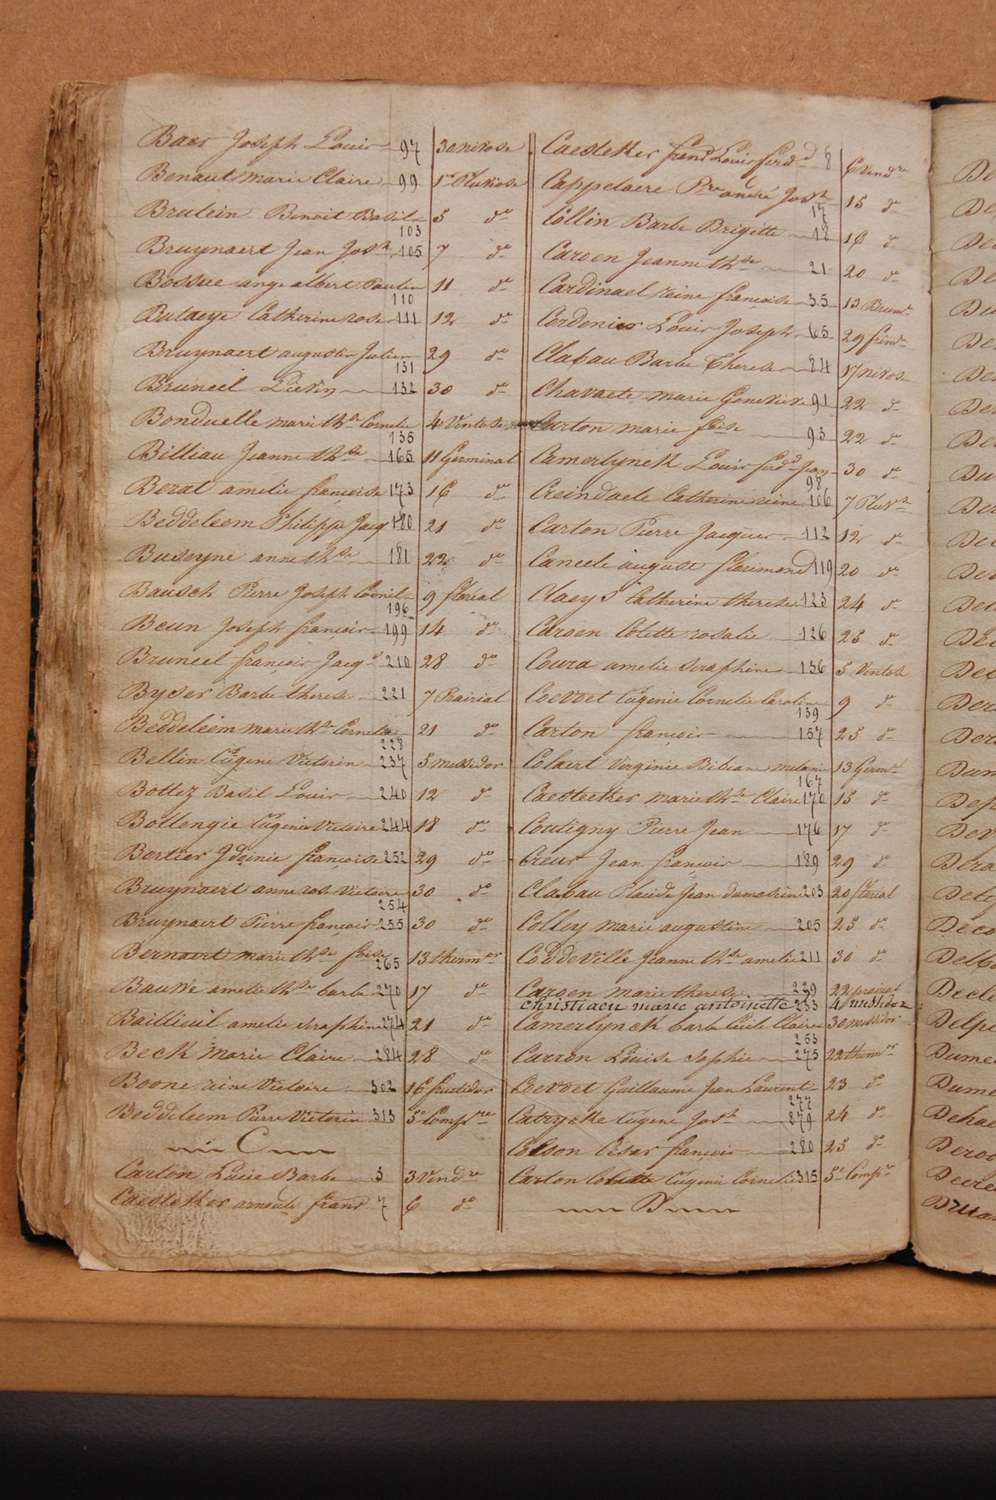 Baes Joseph Louis 97 30 nivose
Benaut marie Claire 99 1er Pluviose
Brutein Benoit Basil 103 5 do
Bruynaert Jean Josh 105 7 do
Bossue ange albert 110 11 do
Butaeye Catherine rose 111 12 do
Bruynaert augustin Julien 131 29 do
Bruneel Lievin 132 30 do
Bonduelle marie the Cornelie 135 4 Ventose
Billiau Jeanne the 165 11 Germinal
Berat amelie francoise 173 16 do
Beddeleem Philippe Jacq 180 21 do
Buseyne anne the 181 22 do
Bausch Pierre Joseph Cornil 196 9 floréal
Beun Joseph francois 199 14 do
Bruneel francois Jacqs 210 28 do
Byser Barbe therese 221 7 Prairial
Beddeleem marie the Cornelie 228 21 do
Bellin Eugene Victorin 237 5 messidor
Bottez Basil Louis 240 12 do
Bollengie Eugenie Victoire 244 18 do
Bertier Ydoinie francoise 252 29 do
Bruynaert anne rose Victoire 254 30 do
Bruynaert Pierre francois 255 30 do
Bernaert marie the foise 265 13 thermor
Bauwe amelie the barbe 270 17 do
Baillieul amelie seraphine 274 21 do
Beck Marie Claire 284 28 do
Boone reine Victoire 302 16 fructidor
Beddeleem Pierre Victorin 313 5e Compre
C
Carton Lucie Barbe 3 3 Vendre
Caesteker amelie 7 6 do
Caesteker frand Louis ferdd 8 6 vendre
Cappelaere Pre andré Josh 17 15 do
Collin Barbe Brigitte 18 16 do
Caroen Jeanne the 21 20 do
Cardinael reine françoise 35 13 Brumre
Cordenier Louis Joseph 65 29 frimre
Clabau Barbe Therese 84 17 nivose
Chavaete marie Genevieve 91 22 do
Carton marie foise 93 22 do
Camerlynck Louis ferdd Jean 98 30 do
Creindaele Catherine reine 106 7 Pluvse
Carton Pierre Jacques 112 12 do
Caneele auguste florimond 119 20 do
Claeys Catherine therese 123 24 do
Caroen Colette rosalie 126 25 do
Coura amelie seraphine 136 5 Ventose
Coevoet Eugenie Cornelie Caroline 139 9 do
Carton françois 157 25 do
Colaert Virginie Bibiane melanie 167 13 Germal
Caesteeker marie the Claire 170 15 do
Coutigny Pierre Jean 176 17 do
Creus Jean francois 189 29 do
Clabau Placide Jean 203 20 floréal
Colley marie augustine 205 25 do
Coudeville Jeanne the amelie 211 30 do
Caroen marie therese 229 22 prairial
Christiaen marie antoinette 233 4 messidor
Camerlynck barbe Cecile Claire 263 30 messidor
Carron Louise Sophie 275 22 thermor
Coevoet Guillaume Jean Laurent 277 23 do
Catrycke Eugene Josh 279 24 do
Colson Cesar françois 280 25 do
Carton Colette Eugenie Cornelie 315 5e Compre
D